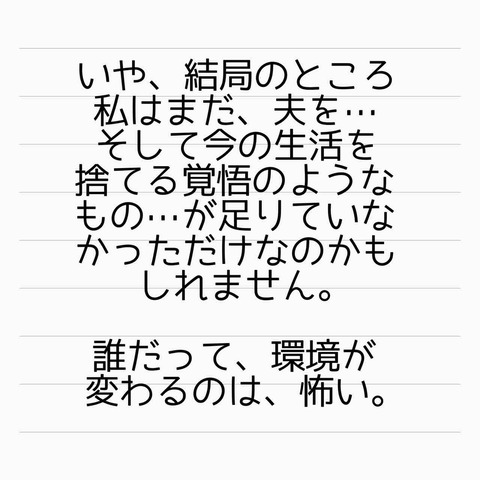 いや、結局のところ
私はまだ、夫を…
そして今の生活を
捨てる覚悟のような
もの…が足りていな
かっただけなのかも
しれません。
誰だって、環境が
変わるのは、怖い。